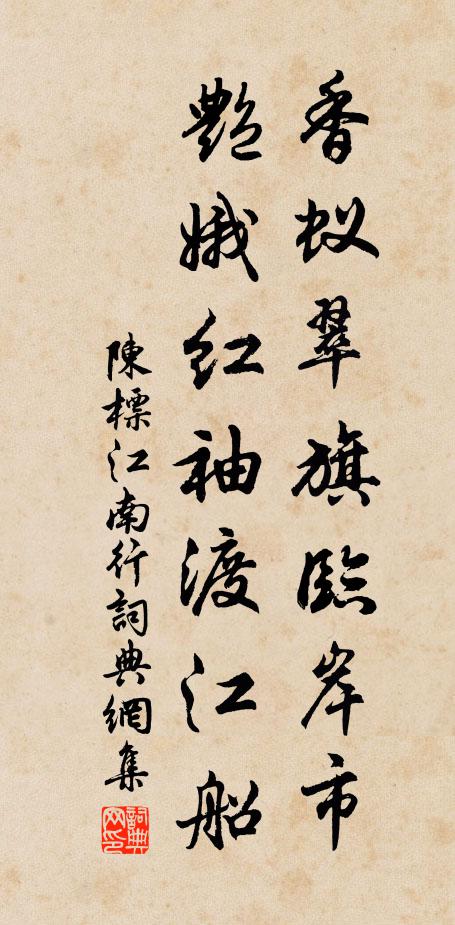 香蚁翠旗臨岸市
艷娥红袖渡江船
陳標江南行詞典網集
詞典網印